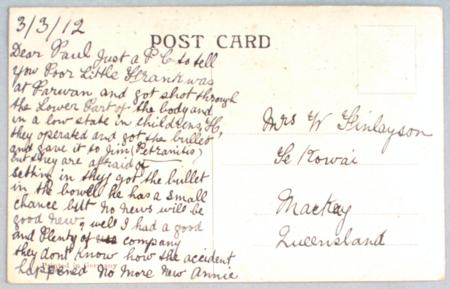 3/3/12
POST CARD
Dear Paul Just a P C to tell
you Poor Little Frank was
at Parwan and got shot through
the Lower Part of the body and
in a low state in childrens H,
they operated and got the bullet
and gave it to Jim (Petranitis)
but they are afraid of
setting in they got the bullet
in the bowell he has a small
chance but no news will be
good new, well I had a good
and Plenty of company
they dont know how the accident
happened No more New Annie
Mrs W Finlayson
Te Kowai
Mackay
Queensland
Printed in Germany